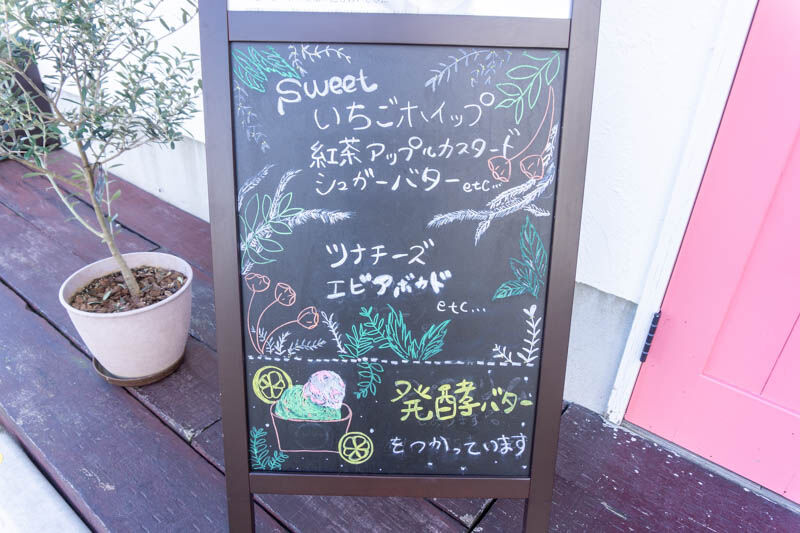 Sweet
いちごホイップ
紅茶アップルカスタード
シュガーバター etc...
ツナチーズ
エビアボカド
etc...
発酵バター
をつかっています